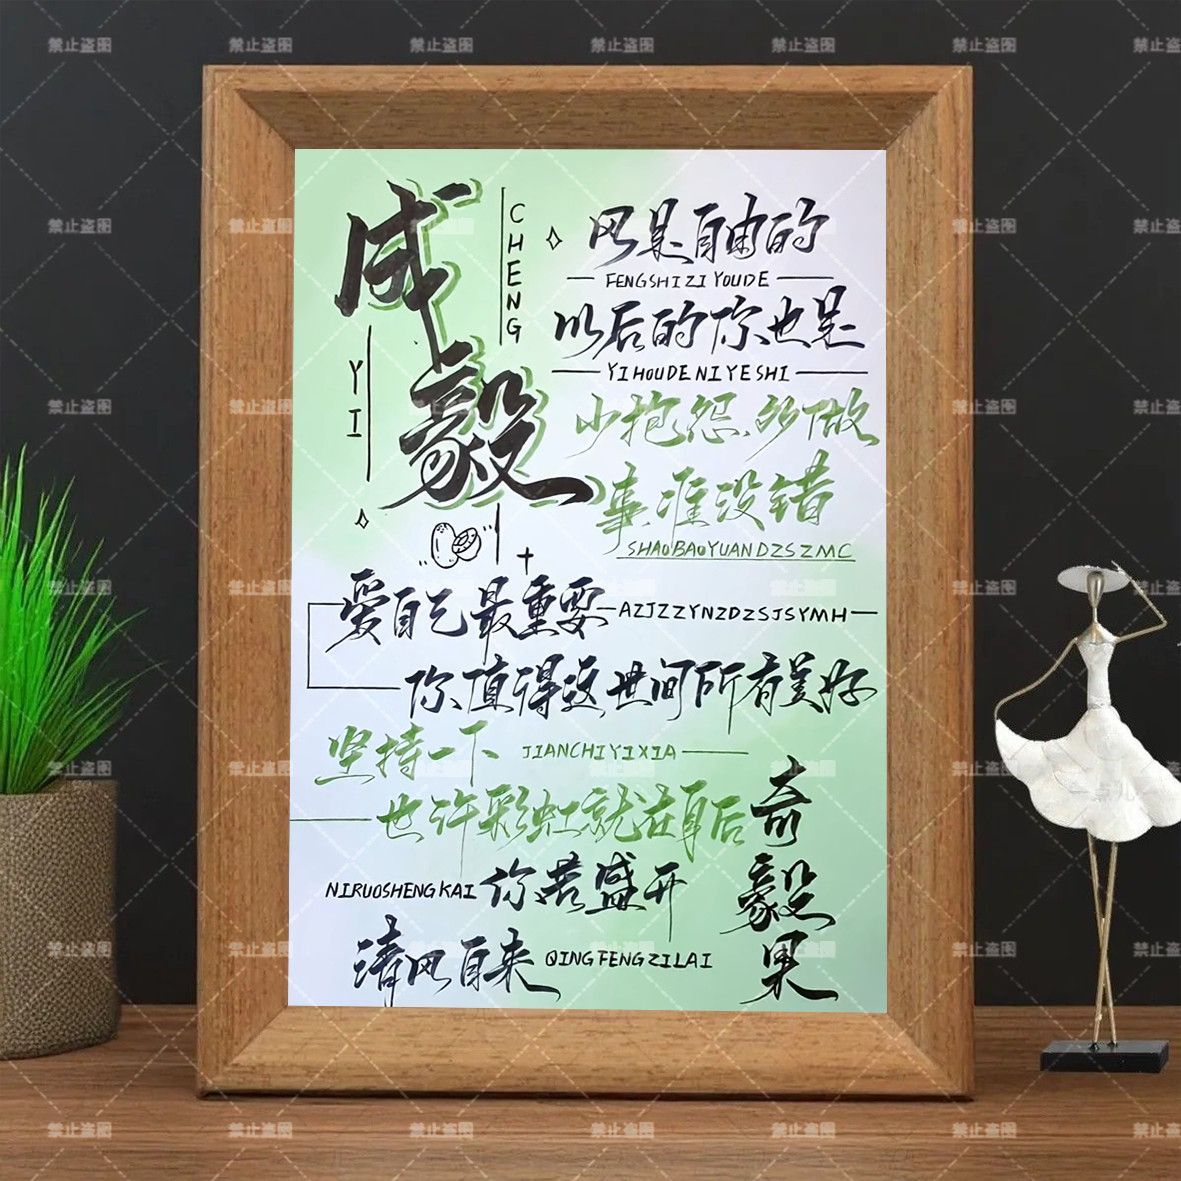 成毅
CHENG
YI
风是自由的
FENGSHIZIYOUDE
以后的你也是
YIHOUDENIYESHI
少抱怨多做
事准没错
SHAOBAOYUANDZSZMC
爱自己最重要
AZJZZYNZDZSJSYMH
你值得这世间所有美好
坚持一下
JIANCHIYIXIA
也许彩虹就在身后
奇毅果
NIRUOSHENGKAI
你若盛开
清风自来
QINGFENGZILAI
禁止盗图